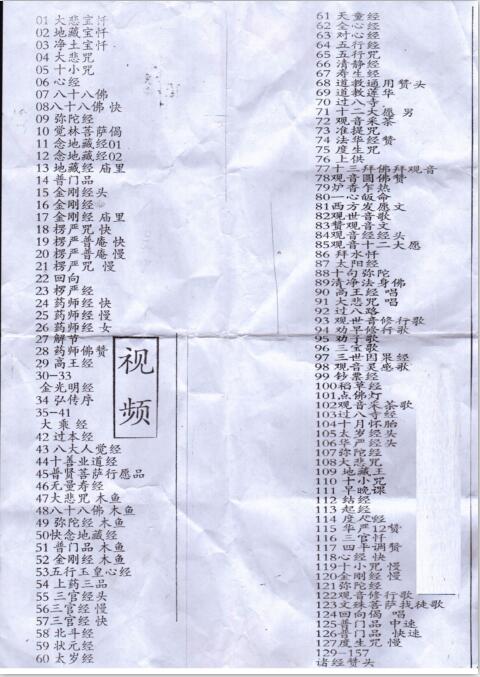 01 大悲宝忏
02 地藏宝忏
03 净土宝忏
04 大悲咒
05 十小咒
06 心经
07 八十八佛
08八十八佛 快
09 弥陀经
10 觉林菩萨偈
11 念地藏经01
12 念地藏经02
13 地藏经 庙里
14 普门品
15 金刚经头
16 金刚经
17 金刚经 庙里
18 楞严咒快
19 楞严普庵 快
20 楞严普庵 慢
21 楞严咒 慢
22 回向
23 楞严经
24 药师经 快
25 药师经 慢
26 药师经 女
27 解节
28 药师佛赞
29 高王经
30-33
金光明经
34 弘传序
35-41
大乘经
42 过本经
43 八大人觉经
44十善业道经
45普贤菩萨行愿品
46无量寿经
47大悲咒 木鱼
48八十八佛 木鱼
49 弥陀经 木鱼
50快念地藏经
51 普门品 木鱼
52 金刚经 木鱼
53五行玉皇心经
54 上药三品
55 三官经头
56 三官经 慢
57 三官经 快
58 北斗经
59 状元经
60 太岁经
视频
61 天童经
62 全心经
63 对心经
64 五行经
65 五行咒
66 清静经
67 寿生经
68 道教通用赞头
69 道教莲华
70 过八寺
71 十二大愿 男
72 观音采茶
73 准提咒
74 法华经赞
75 度生咒
76 上供
77十三拜佛拜观音
78观音圆佛赞
79炉香乍热
80一心皈命
81西方发愿文
82观世音歌
83赞观音文
84观音经经头
85观音十二大愿
86 拜水忏
87 太阳经
88十句弥陀
89清净法身佛
90 高王经 唱
91 大悲咒 唱
92 过八路
93 观世音修行歌
94 劝早修行歌
95 劝子歌
96 三宝歌
97 三世因果经
98 观音灵感歌
99 钞票经
100稻草经
101点佛灯
102观音采茶歌
103过八寺经
104十月怀胎
105太岁经头
106华严经头
107弥陀经
108大悲咒
109 地藏王
110 十小咒
111 早晚课
112 结经
113 起经
114 度尺经
115 华严12赞
116 三官忏
117 四平调赞
118心经 快
119十小咒 慢
120金刚经 慢
121弥陀经
122观音修行歌
123文殊菩萨找徒歌
124回向偈 唱
125普门品 中速
126普门品 快速
127度生咒 慢
129-157
诸经赞头